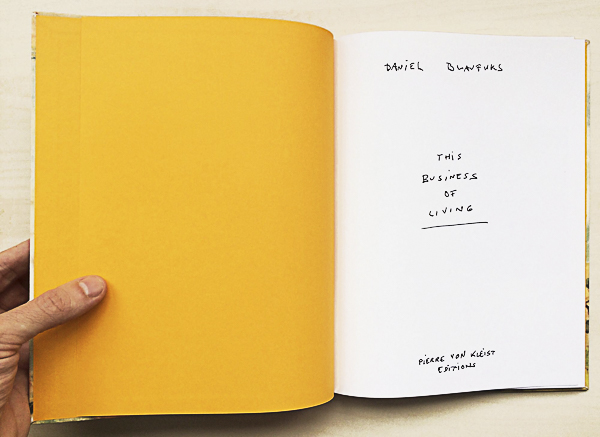 DANiEL BLAUFUKS
THiS
BUSiNESS
OF
LiViNG
PiERRE VON KLEiST
EDiTiONS